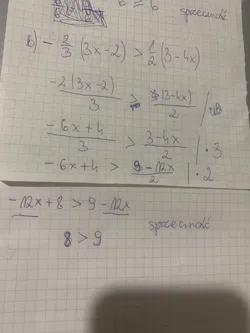 sprzeczność
b) - 2/3 (3x-2) > 1/2 (3-4x)
-2(3x-2)/3 > (3-4x)/2 |
-6x+4/3 > 3-4x/2 | · 3
-6x+4 > 9-12x/2 | · 2
-12x+8 > 9-12x
sprzeczność
8 > 9